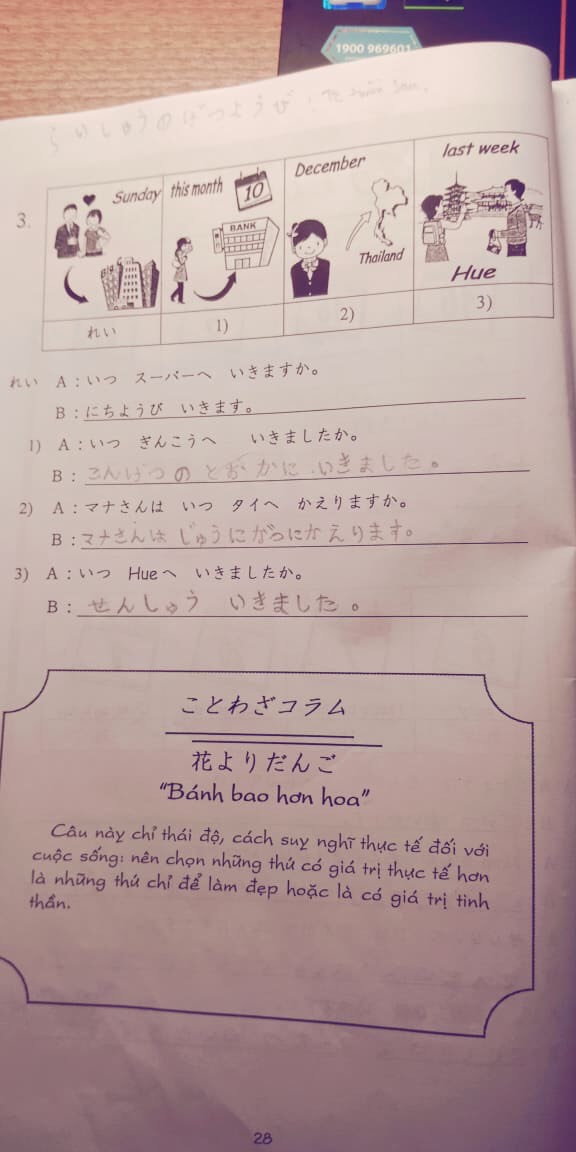 1900 969601
らいしゅうのげつようび
3.
Sunday
this month
10
BANK
December
Thailand
last week
Hue
れい
1)
2)
3)
れい A：いつ スーパーへ いきますか。
B：にちようび いきます。
1) A：いつ ぎんこうへ いきましたか。
B：こんげつ の とおかに いきました。
2) A：マナさんは いつ タイへ かえりますか。
B：マナさんは じゅうにがつにかえります。
3) A：いつ Hueへ いきましたか。
B：せんしゅう いきました。
ことわざコラム
花よりだんご
“Bánh bao hơn hoa”
Câu này chỉ thái độ, cách suy nghĩ thực tế đối với
cuộc sống: nên chọn những thứ có giá trị thực tế hơn
là những thứ chỉ để làm đẹp hoặc là có giá trị tinh
thần.
28